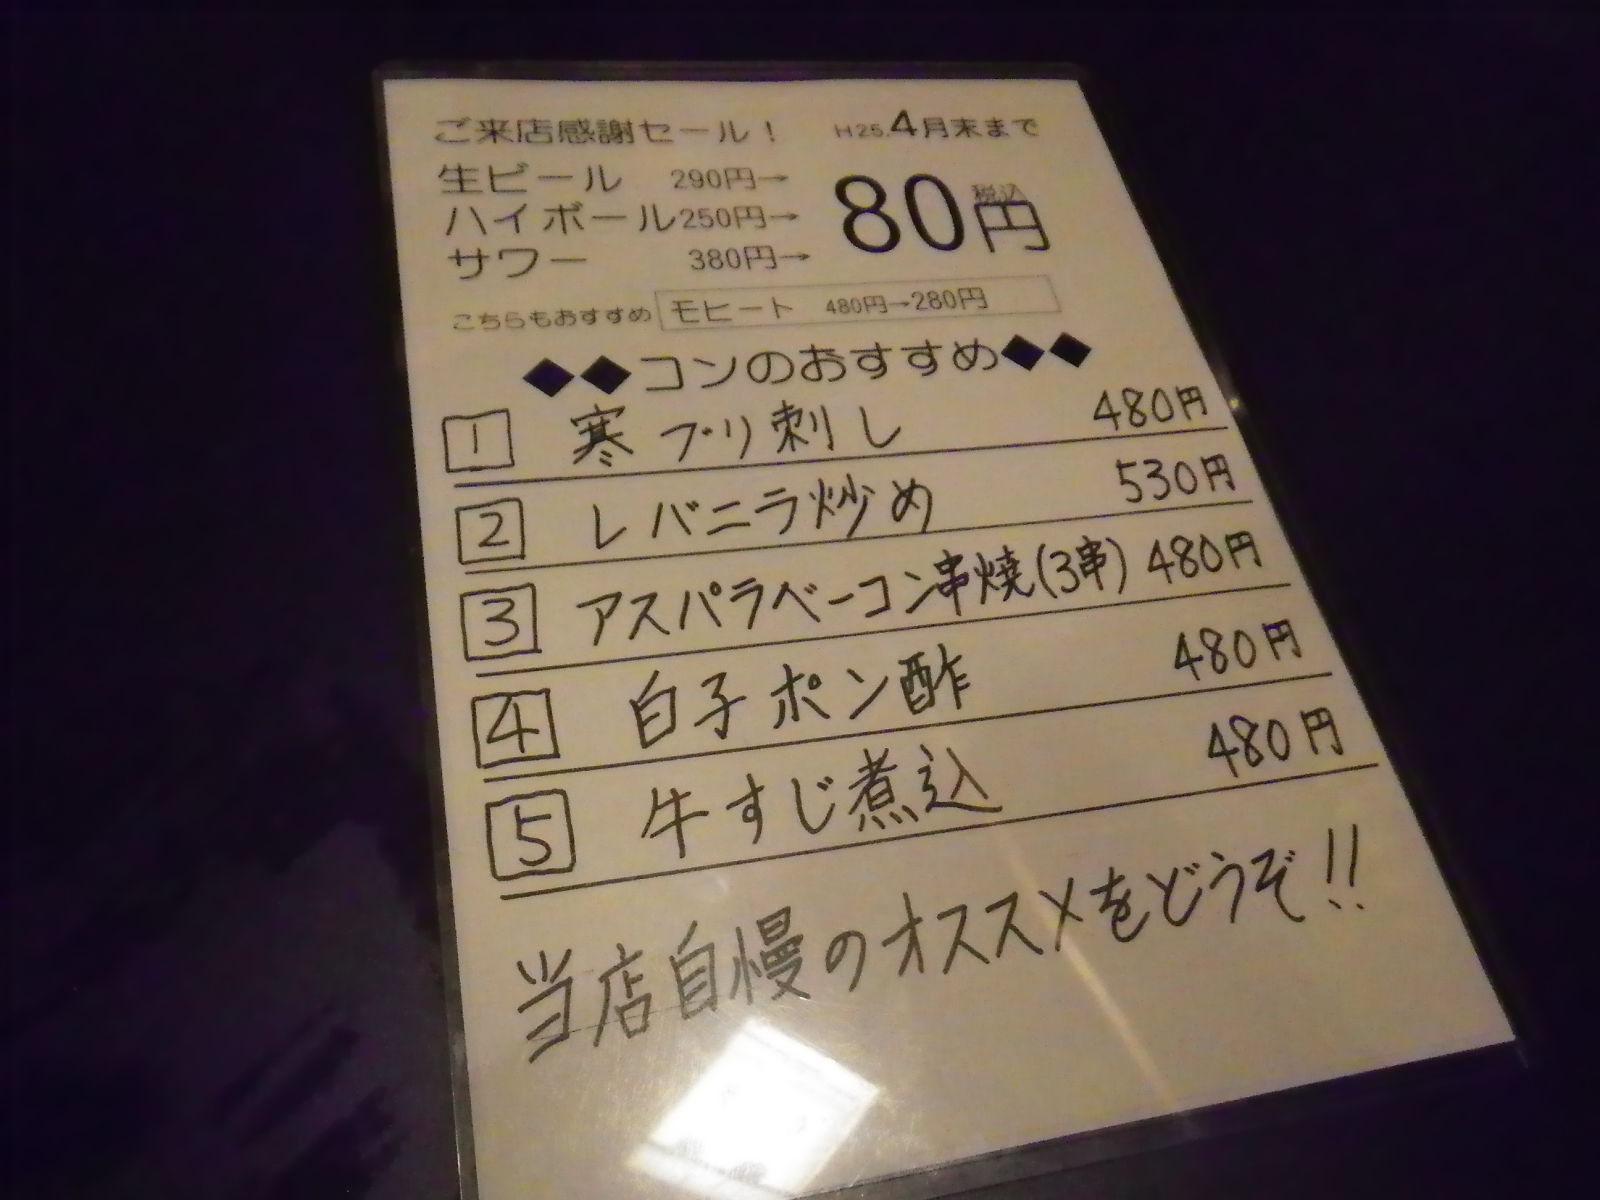 ご来店感謝セール！ H25.4月末まで
生ビール 290円→
ハイボール250円→ 80円 税込
サワー 380円→
こちらもおすすめ モヒート 480円→280円
◆◆コンのおすすめ◆◆
1 寒ブリ刺し 480円
2 レバニラ炒め 530円
3 アスパラベーコン串焼(3串) 480円
4 白子ポン酢 480円
5 牛すじ煮込 480円
当店自慢のオススメをどうぞ!!